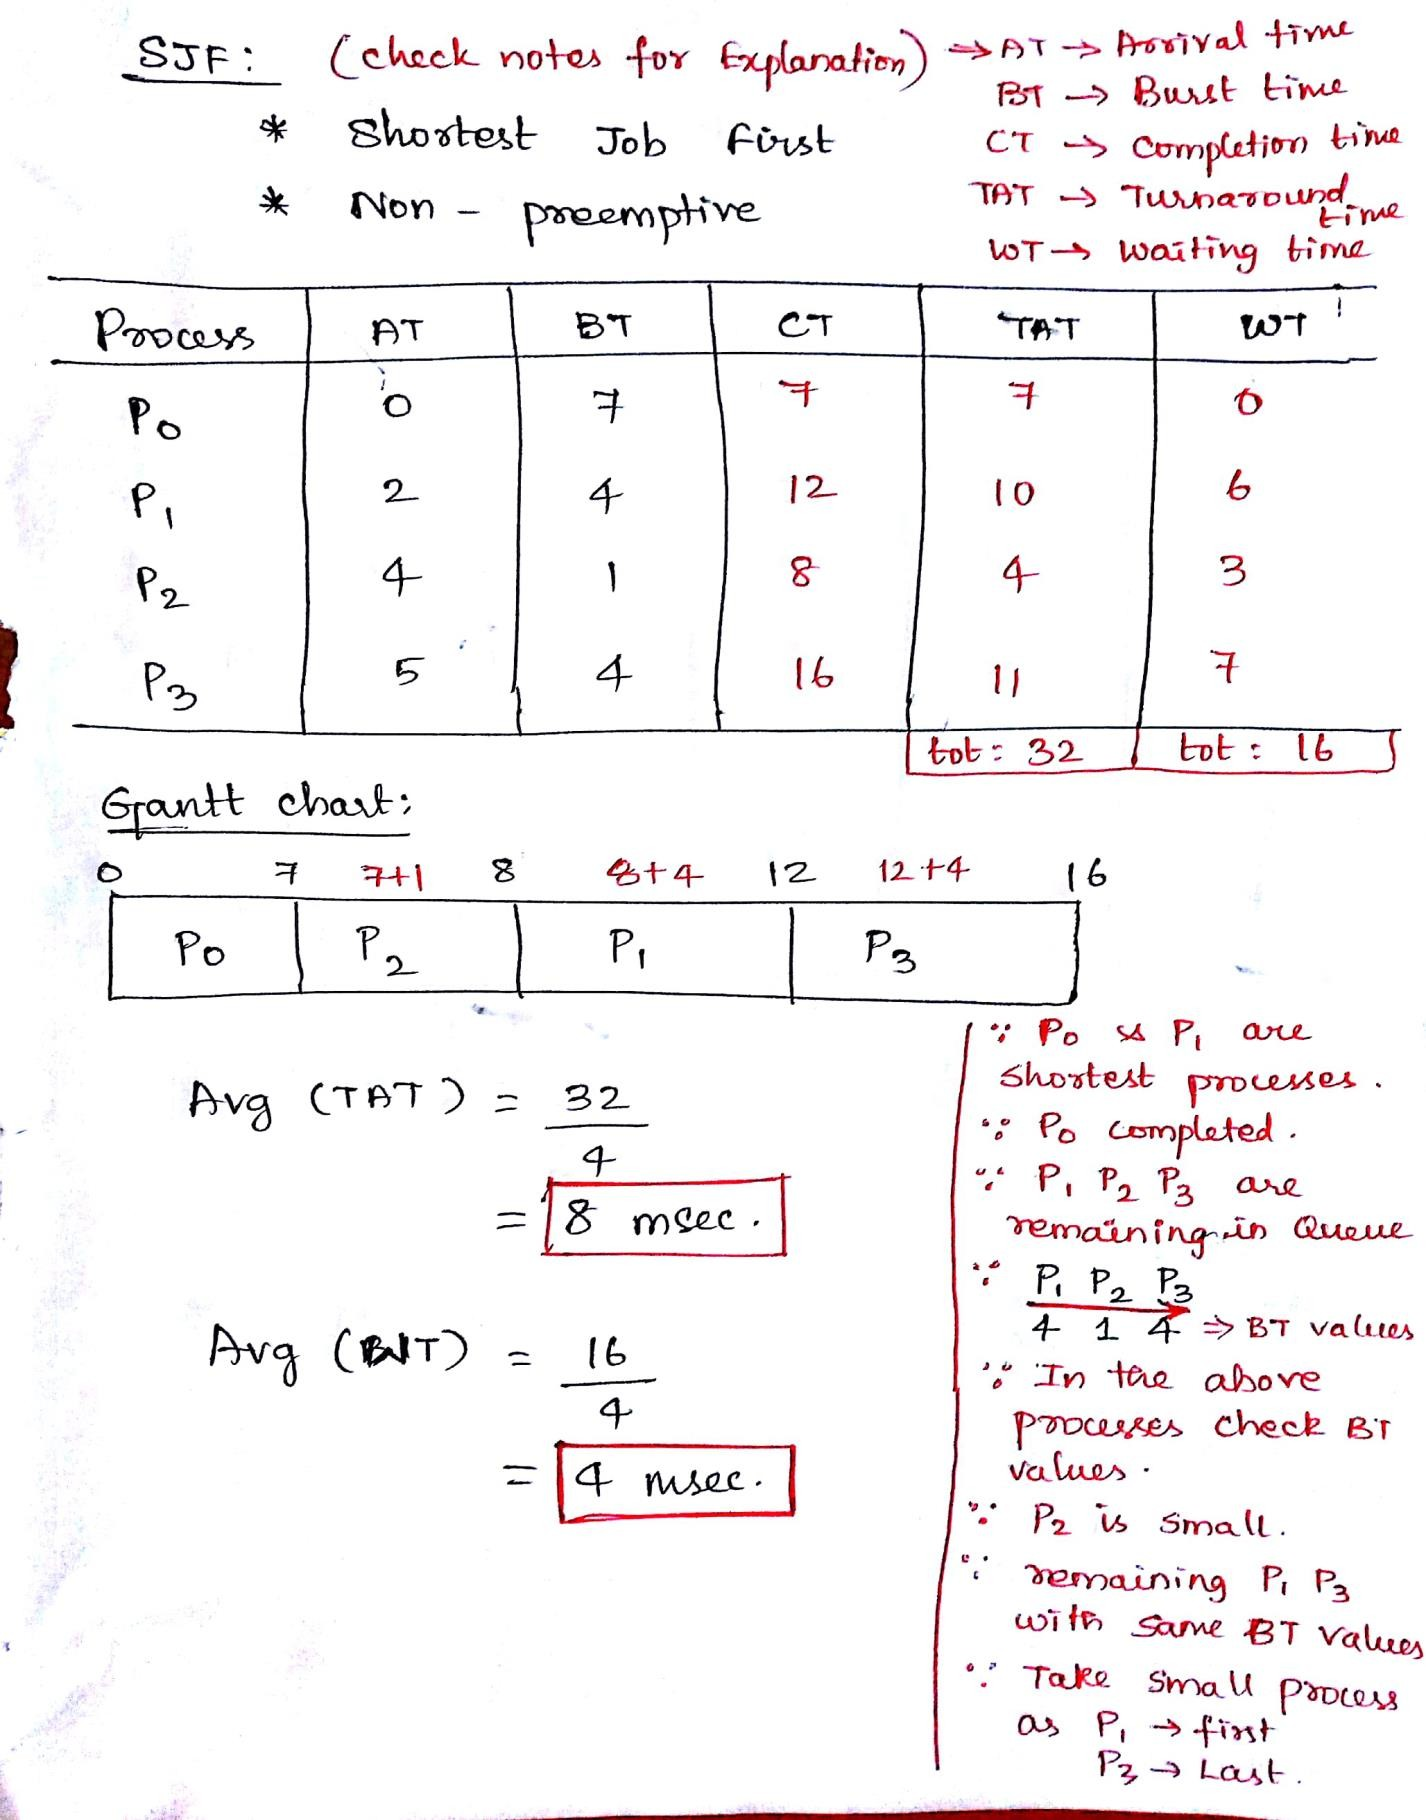 SJF: (check notes for Explanation) ⇒ AT → Arrival time
BT → Burst time
* Shortest Job first
CT → Completion time
* Non - preemptive
TAT → Turnaround time
WT → Waiting time
Process AT BT CT TAT WT
P0 0 7 7 7 0
P1 2 4 12 10 6
P2 4 1 8 4 3
P3 5 4 16 11 7
tot: 32 tot: 16
Gantt chart:
0 7 7+1 8 8+4 12 12+4 16
P0 P2 P1 P3
Avg (TAT) = 32
4
= 8 msec.
Avg (WT) = 16
4
= 4 msec.
∵ P0 P1 are
shortest processes.
∵ P0 completed.
∵ P1 P2 P3 are
remaining in Queue
∵ P1 P2 P3
4 1 4 ⇒ BT values
∵ In the above
processes check BT
values.
∵ P2 is small.
∵ remaining P1 P3
with same BT values
∵ Take small process
as P1 → first
P3 → Last.